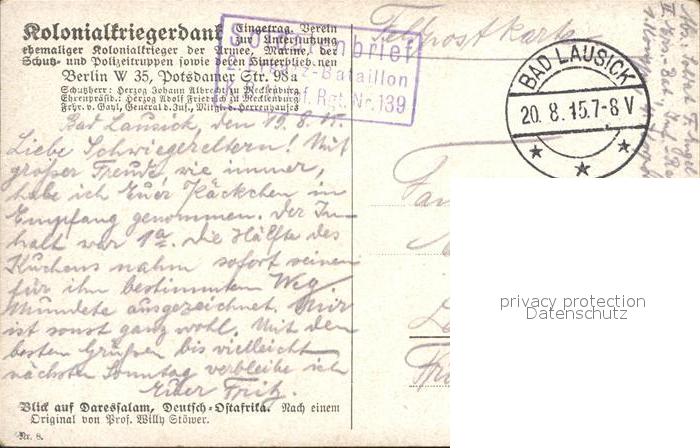 Kolonialkriegerdank Eingetrag. Verein
zur Unterstützung
ehemaliger Kolonialkrieger der Armee, Marine, der
Schutz- und Polizeitruppen sowie deren Hinterblieb.nen
Berlin W 35, Potsdamer Str. 98a
Schutzherr: Herzog Johann Albrecht zu Mecklenburg
Ehrenpräsid.: Herzog Adolf Friedrich zu Mecklenburg
Frhr. v. Gayl, General d. Inf., Mitgl. d. Herrenhauses
Soldatenbrief
Bataillon
Rgt. Nr. 139
Feldpostkarte
BAD LAUSICK
20. 8. 15. 7-8 V
Bad Lausick, den 19.8.15.
Liebe Schwiegereltern! Mit
großer Freude wie immer,
habe ich Euer Päckchen in
Empfang genommen. Der In-
halt war 1a. Die Hälfte des
Kuchens nahm sofort seinen
für ihn bestimmten Weg.
Mundete ausgezeichnet. Mir
ist sonst ganz wohl. Mit den
besten Grüßen bis vielleicht
nächsten Sonntag verbleibe ich
Euer Fritz.
Blick auf Daressalam, Deutsch-Ostafrika. Nach einem
Original von Prof. Willy Stöwer.
Nr. 8.
privacy protection
Datenschutz